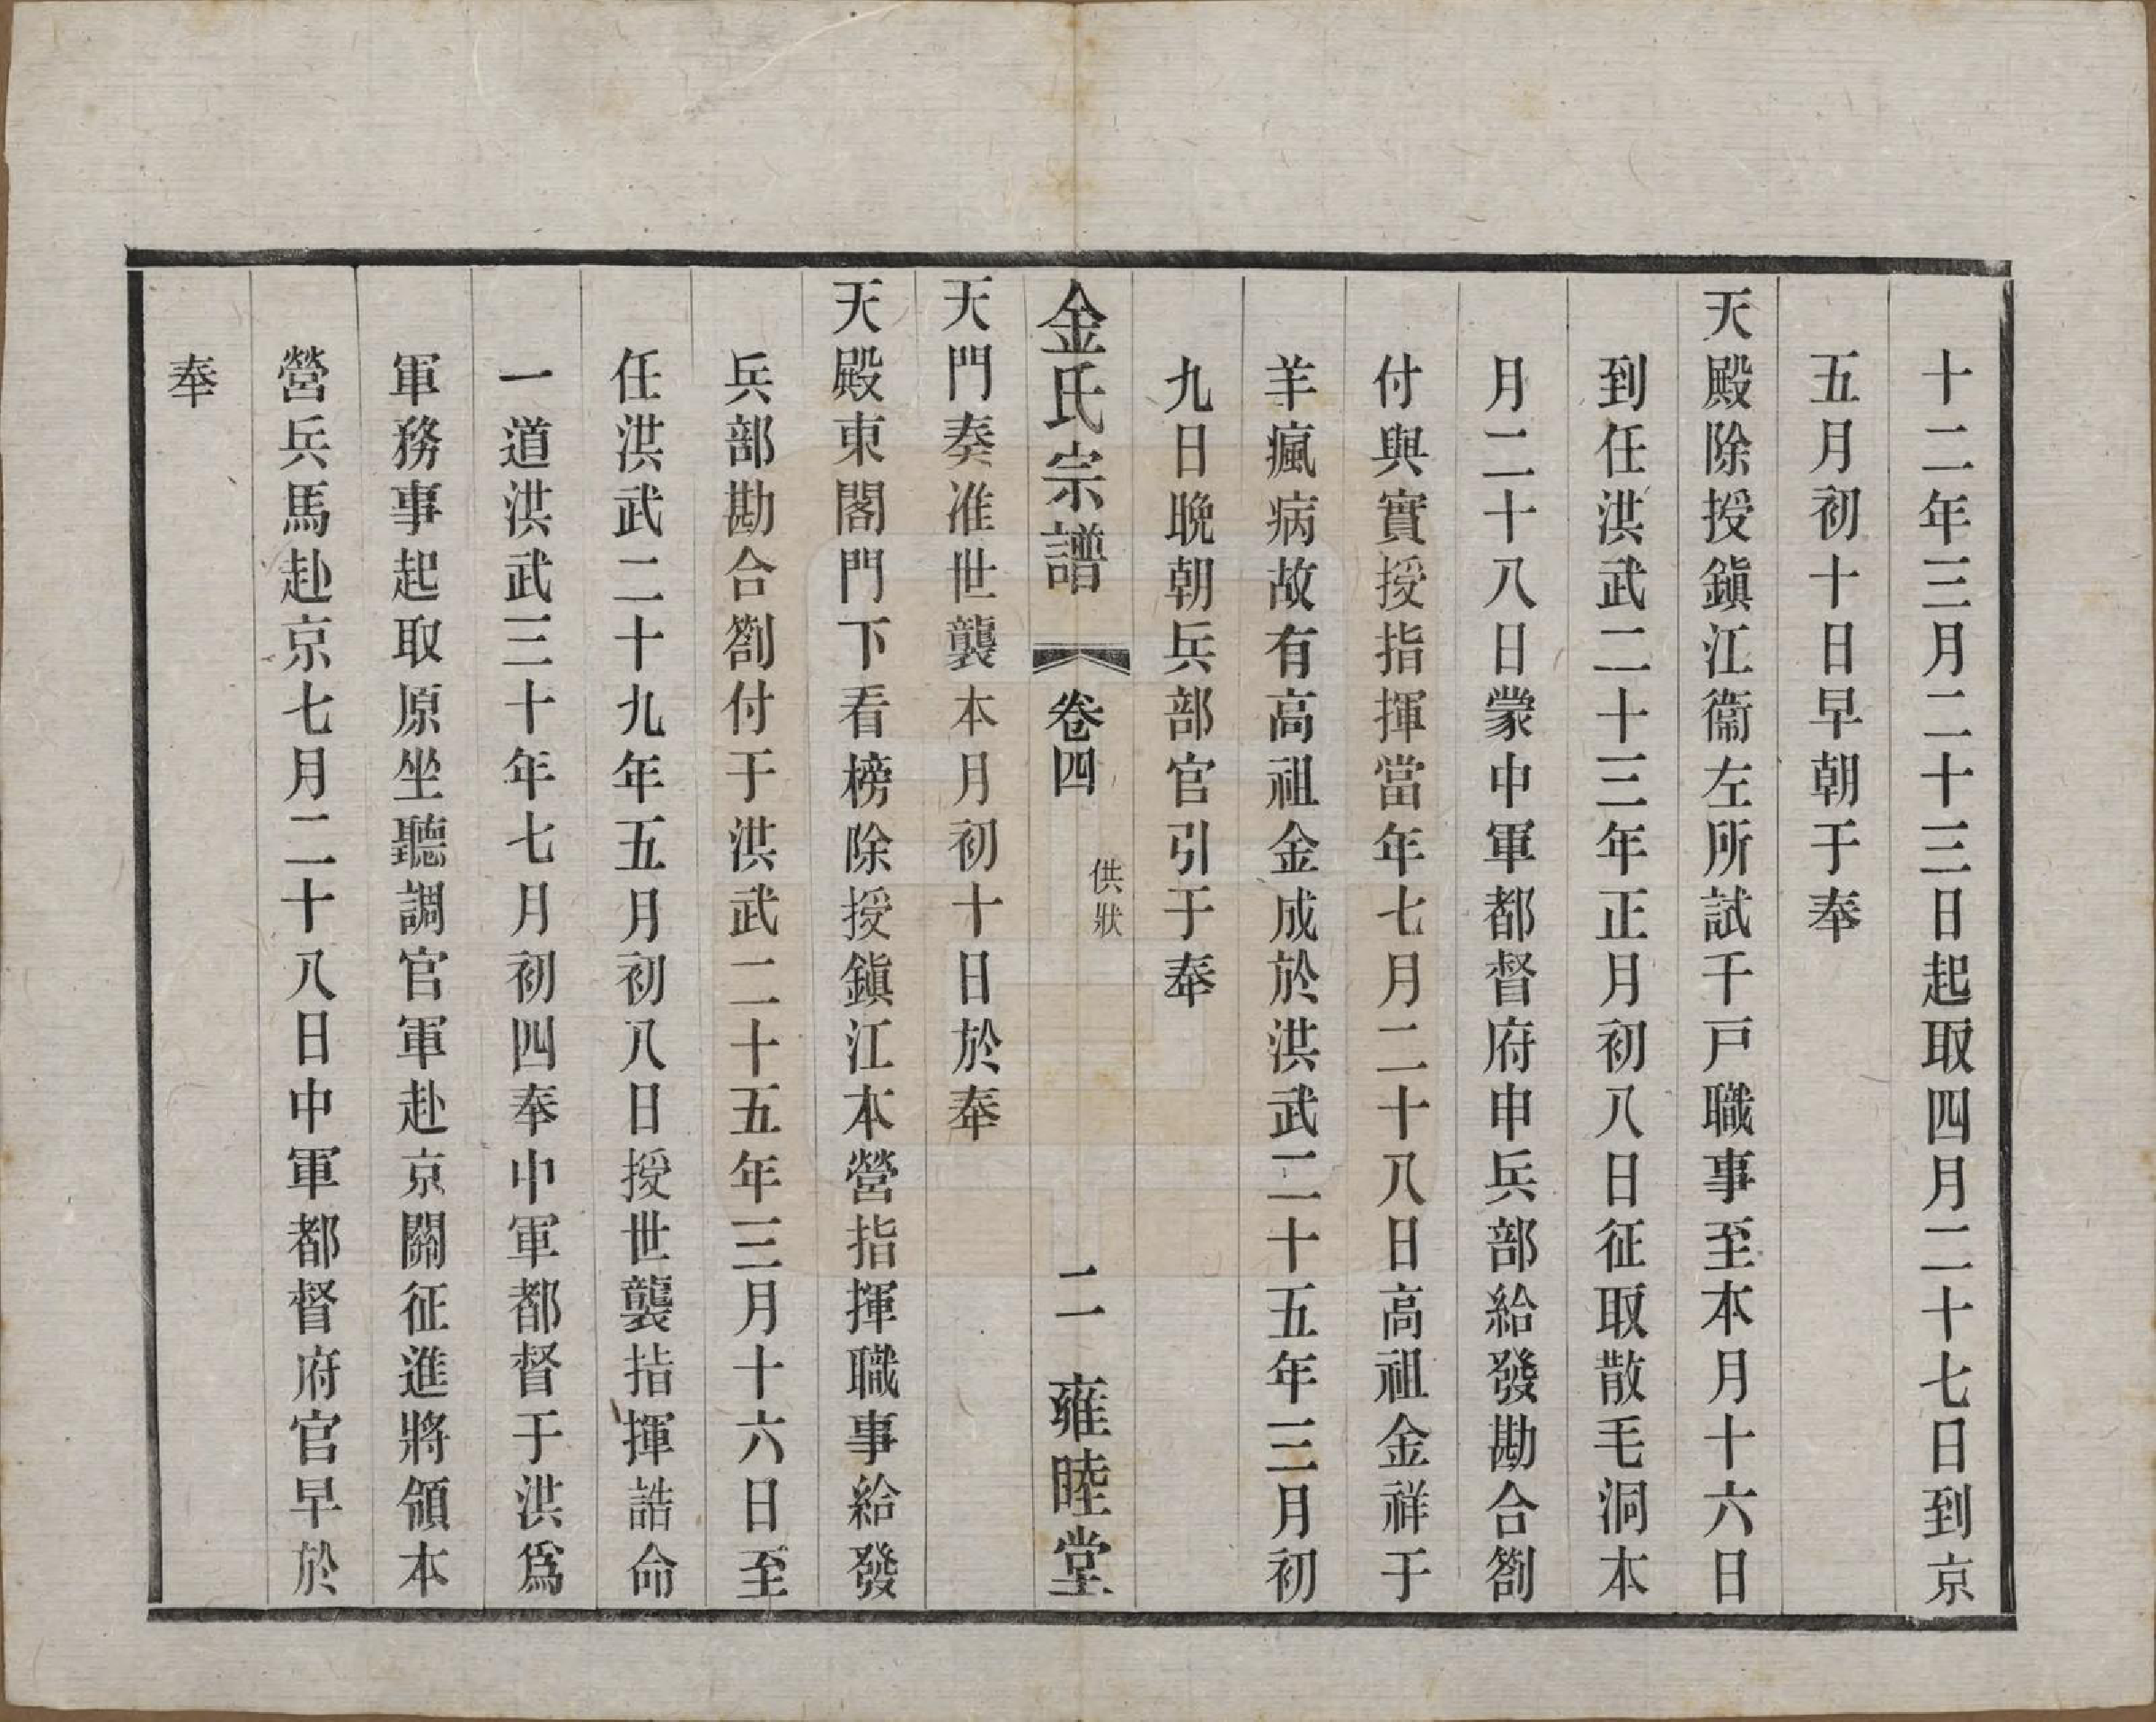 十二年三月二十三日起取四月二十七日到京
五月初十日早朝于奉
天殿除授鎭江衞左所試千戸職事至本月十六日
到任洪武二十三年正月初八日征取散毛洞本
月二十八日蒙中軍都督府申兵部給發勘合劄
付與實授指揮當年七月二十八日高祖金祥于
羊瘋病故有高祖金成於洪武二十五年三月初
九日晚朝兵部官引于奉
金氏宗譜
卷四
供狀
二
雍睦堂
天門奏准世襲本月初十日於奉
天殿東閣門下看榜除授鎭江本營指揮職事給發
兵部勘合劄付于洪武二十五年三月十六日至
任洪武二十九年五月初八日授世襲指揮誥命
一道洪武三十年七月初四奉中軍都督于洪爲
軍務事起取原坐聽調官軍赴京關征進將領本
營兵馬赴京七月二十八日中軍都督府官早於
奉